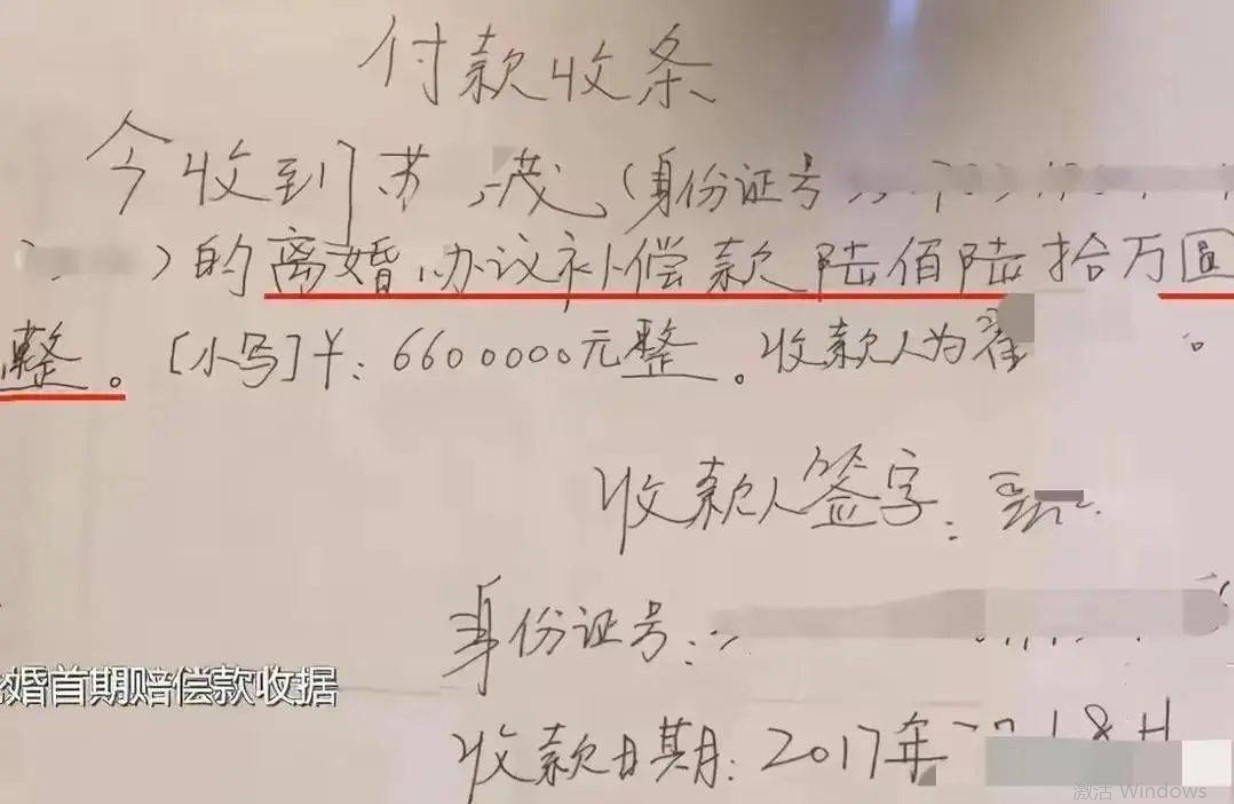 付款收条
今收到苏 茂(身份证号
)的离婚办议补偿款陆佰陆拾万圆
整。[小写]¥:6600000元整。收款人为翟 。
收款人签字:
身份证号:
婚首期赔偿款收据
收款日期:2017年
激活 Windows